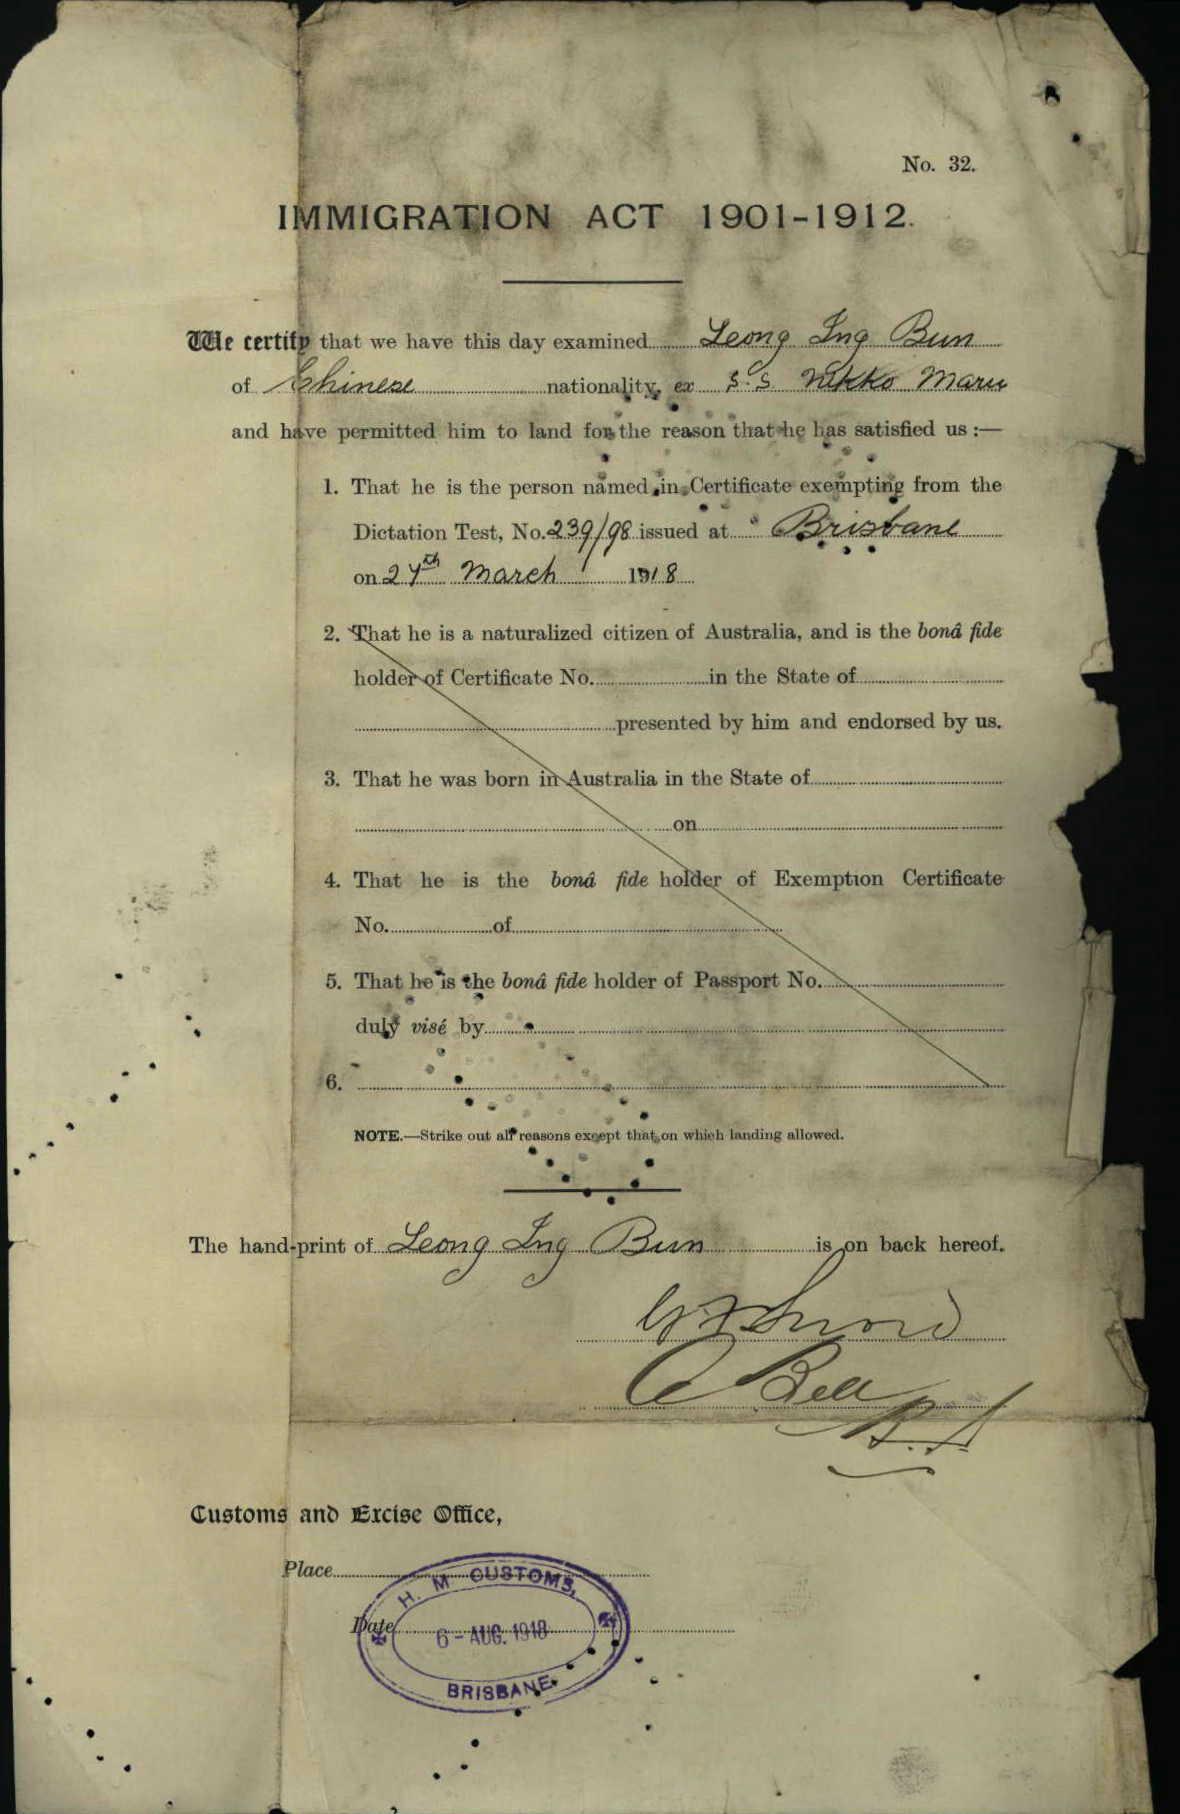 No. 32.
IMMIGRATION ACT 1901-1912.
We certify that we have this day examined Leong Ing Bun
of Chinese nationality, ex S.S. Nikko Maru
and have permitted him to land for the reason that he has satisfied us :—
1. That he is the person named in Certificate exempting from the
Dictation Test, No. 239/98 issued at Brisbane
on 27th March 1918
2. That he is a naturalized citizen of Australia, and is the bonâ fide
holder of Certificate No. in the State of
presented by him and endorsed by us.
3. That he was born in Australia in the State of
on
4. That he is the bonâ fide holder of Exemption Certificate
No. of
5. That he is the bonâ fide holder of Passport No.
duly visé by
6.
NOTE.—Strike out all reasons except that on which landing allowed.
The hand-print of Leong Ing Bun is on back hereof.
Bell
Customs and Excise Office,
Place
H. M CUSTOMS,
Date
6 - AUG. 1918
BRISBANE